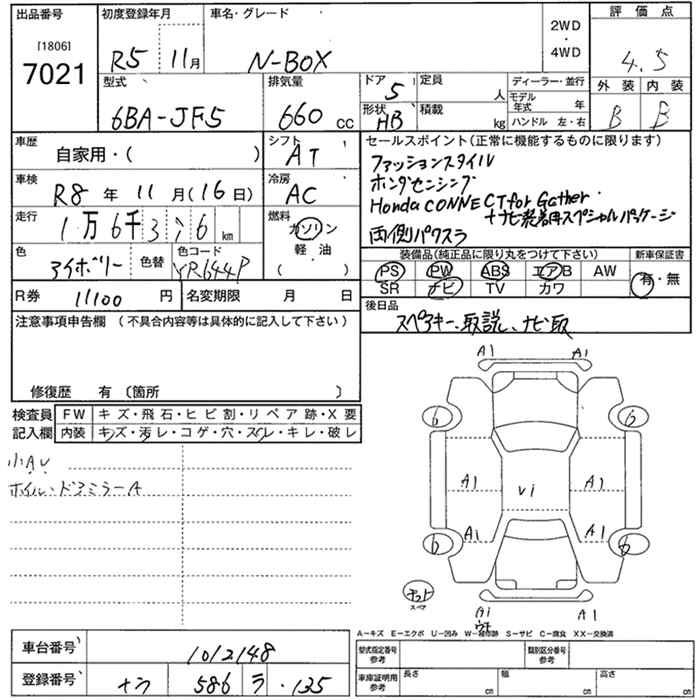 出品番号 初度登録年月 車名・グレード 2WD・4WD 評価点
[1806]
7021
R5 11月 N-BOX 4.5
型式 排気量 ドア 定員 ディーラー・並行 外装 内装
5 人 モデル年式 年
6BA-JF5 660 cc 形状 積載 B B
HB kg ハンドル 左・右
車歴 シフト セールスポイント(正常に機能するものに限ります)
自家用・( ) AT ファッションスタイル
車検 冷房 ホンダセンシング
R8 年 11 月(16日) AC Honda CONNECT for Gather
走行 燃料 +ナビ装着用スペシャルパッケージ
1万6千376km ガソリン 両側パワスラ
色 色替 色コード 軽・油 装備品(純正品に限り丸をつけて下さい) 新車保証書
アイボリー YR644P ( ) PS PW ABS エアB AW 有・無
SR ナビ TV カワ
R券 11100 円 名変期限 月 日 後日品
スペアキー、取説、ナビ取
注意事項申告欄 (不具合内容等は具体的に記入して下さい)
修復歴 有 〔箇所 〕
検査員 FW キズ・飛石・ヒビ割・リペア跡・X要
記入欄 内装 キズ・汚レ・コゲ・穴・スレ・キレ・破レ
小AU
ホイル・ドアミラーA
A1 A1
6 6
A1 Vi A1
A1 A1
6 6
スペア
Ai A1
A-キズ E-エクボ U-凹み W-補修跡 S-サビ C-腐食 XX-交換済
車台番号 1012148 型式指定番号 参考 類別区分番号 参考
登録番号 586 ラ ・135 車庫証明用 参考 長さ cm 幅 cm 高さ cm